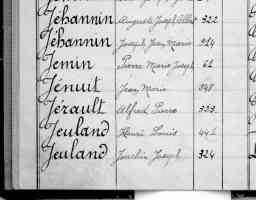 Jéhannin Auguste Joseph Albert 322
Jéhannin Joseph Jean Marie 914
Jemin Pierre Marie Joseph 61
Jénuit Jean Marie 848
Jérault Alfred Pierre 323
Jeuland Henri Louis 441
Jeuland Joachin Joseph 324